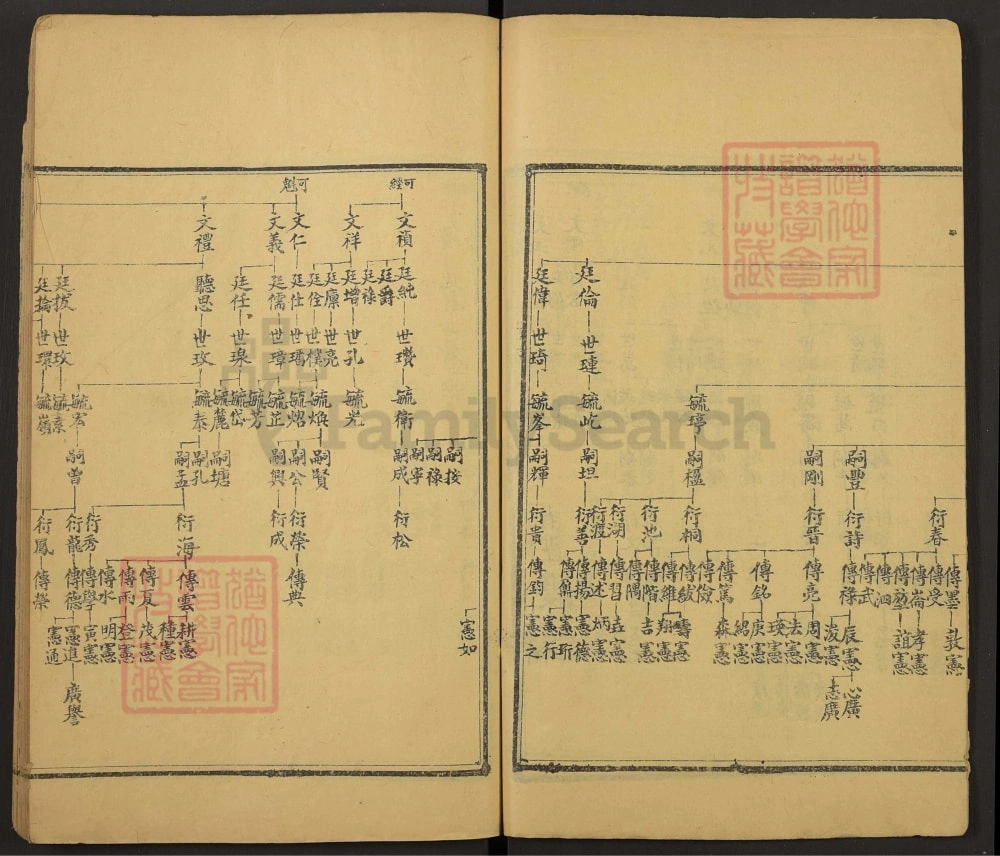 廷倫
廷偉
世璉
世琦
毓瑃
毓此
毓峯
嗣豐
嗣剛
嗣楹
嗣坦
嗣輝
衍春
衍詩
衍晉
衍桐
衍池
衍湖
衍渡
衍善
衍貴
傳墨
傳受
傳崙
傳泗
傳武
傳祿
傳亮
傳銘
傳篤
傳儉
傳紱
傳維
傳階
傳隅
傳習
傳述
傳揚
傳鈞
憲敦
憲孝
憲誼
憲辰
憲浚
憲周
憲法
憲瑛
憲庚
憲紹
憲森
憲翔
憲吉
憲垚
憲炳
憲德
憲珩
憲行
憲之
廣心
廣志
可經
可魁
文禎
文祥
文仁
文義
文禮
廷純
廷爵
廷祿
廷增
廷廩
廷佺
廷仕
廷儒
廷任
聽思
廷拔
廷掄
世瓚
世孔
世亮
世樸
世璠
世璋
世瑔
世玫
世玫
世環
毓衛
毓光
毓煥
毓熔
毓芷
毓芳
毓岱
毓麓
毓泰
毓宏
毓素
毓嶺
嗣按
嗣祿
嗣寧
嗣成
嗣賢
嗣公
嗣興
嗣塘
嗣孔
嗣孟
嗣曾
衍松
衍榮
衍成
衍海
衍秀
衍龍
衍鳳
傳典
傳雲
傳夏
傳雨
傳水
傳學
傳德
傳榮
憲如
憲耕
憲種
憲茂
憲登
憲明
憲寅
憲進
憲通
廣譽
FamilySearch